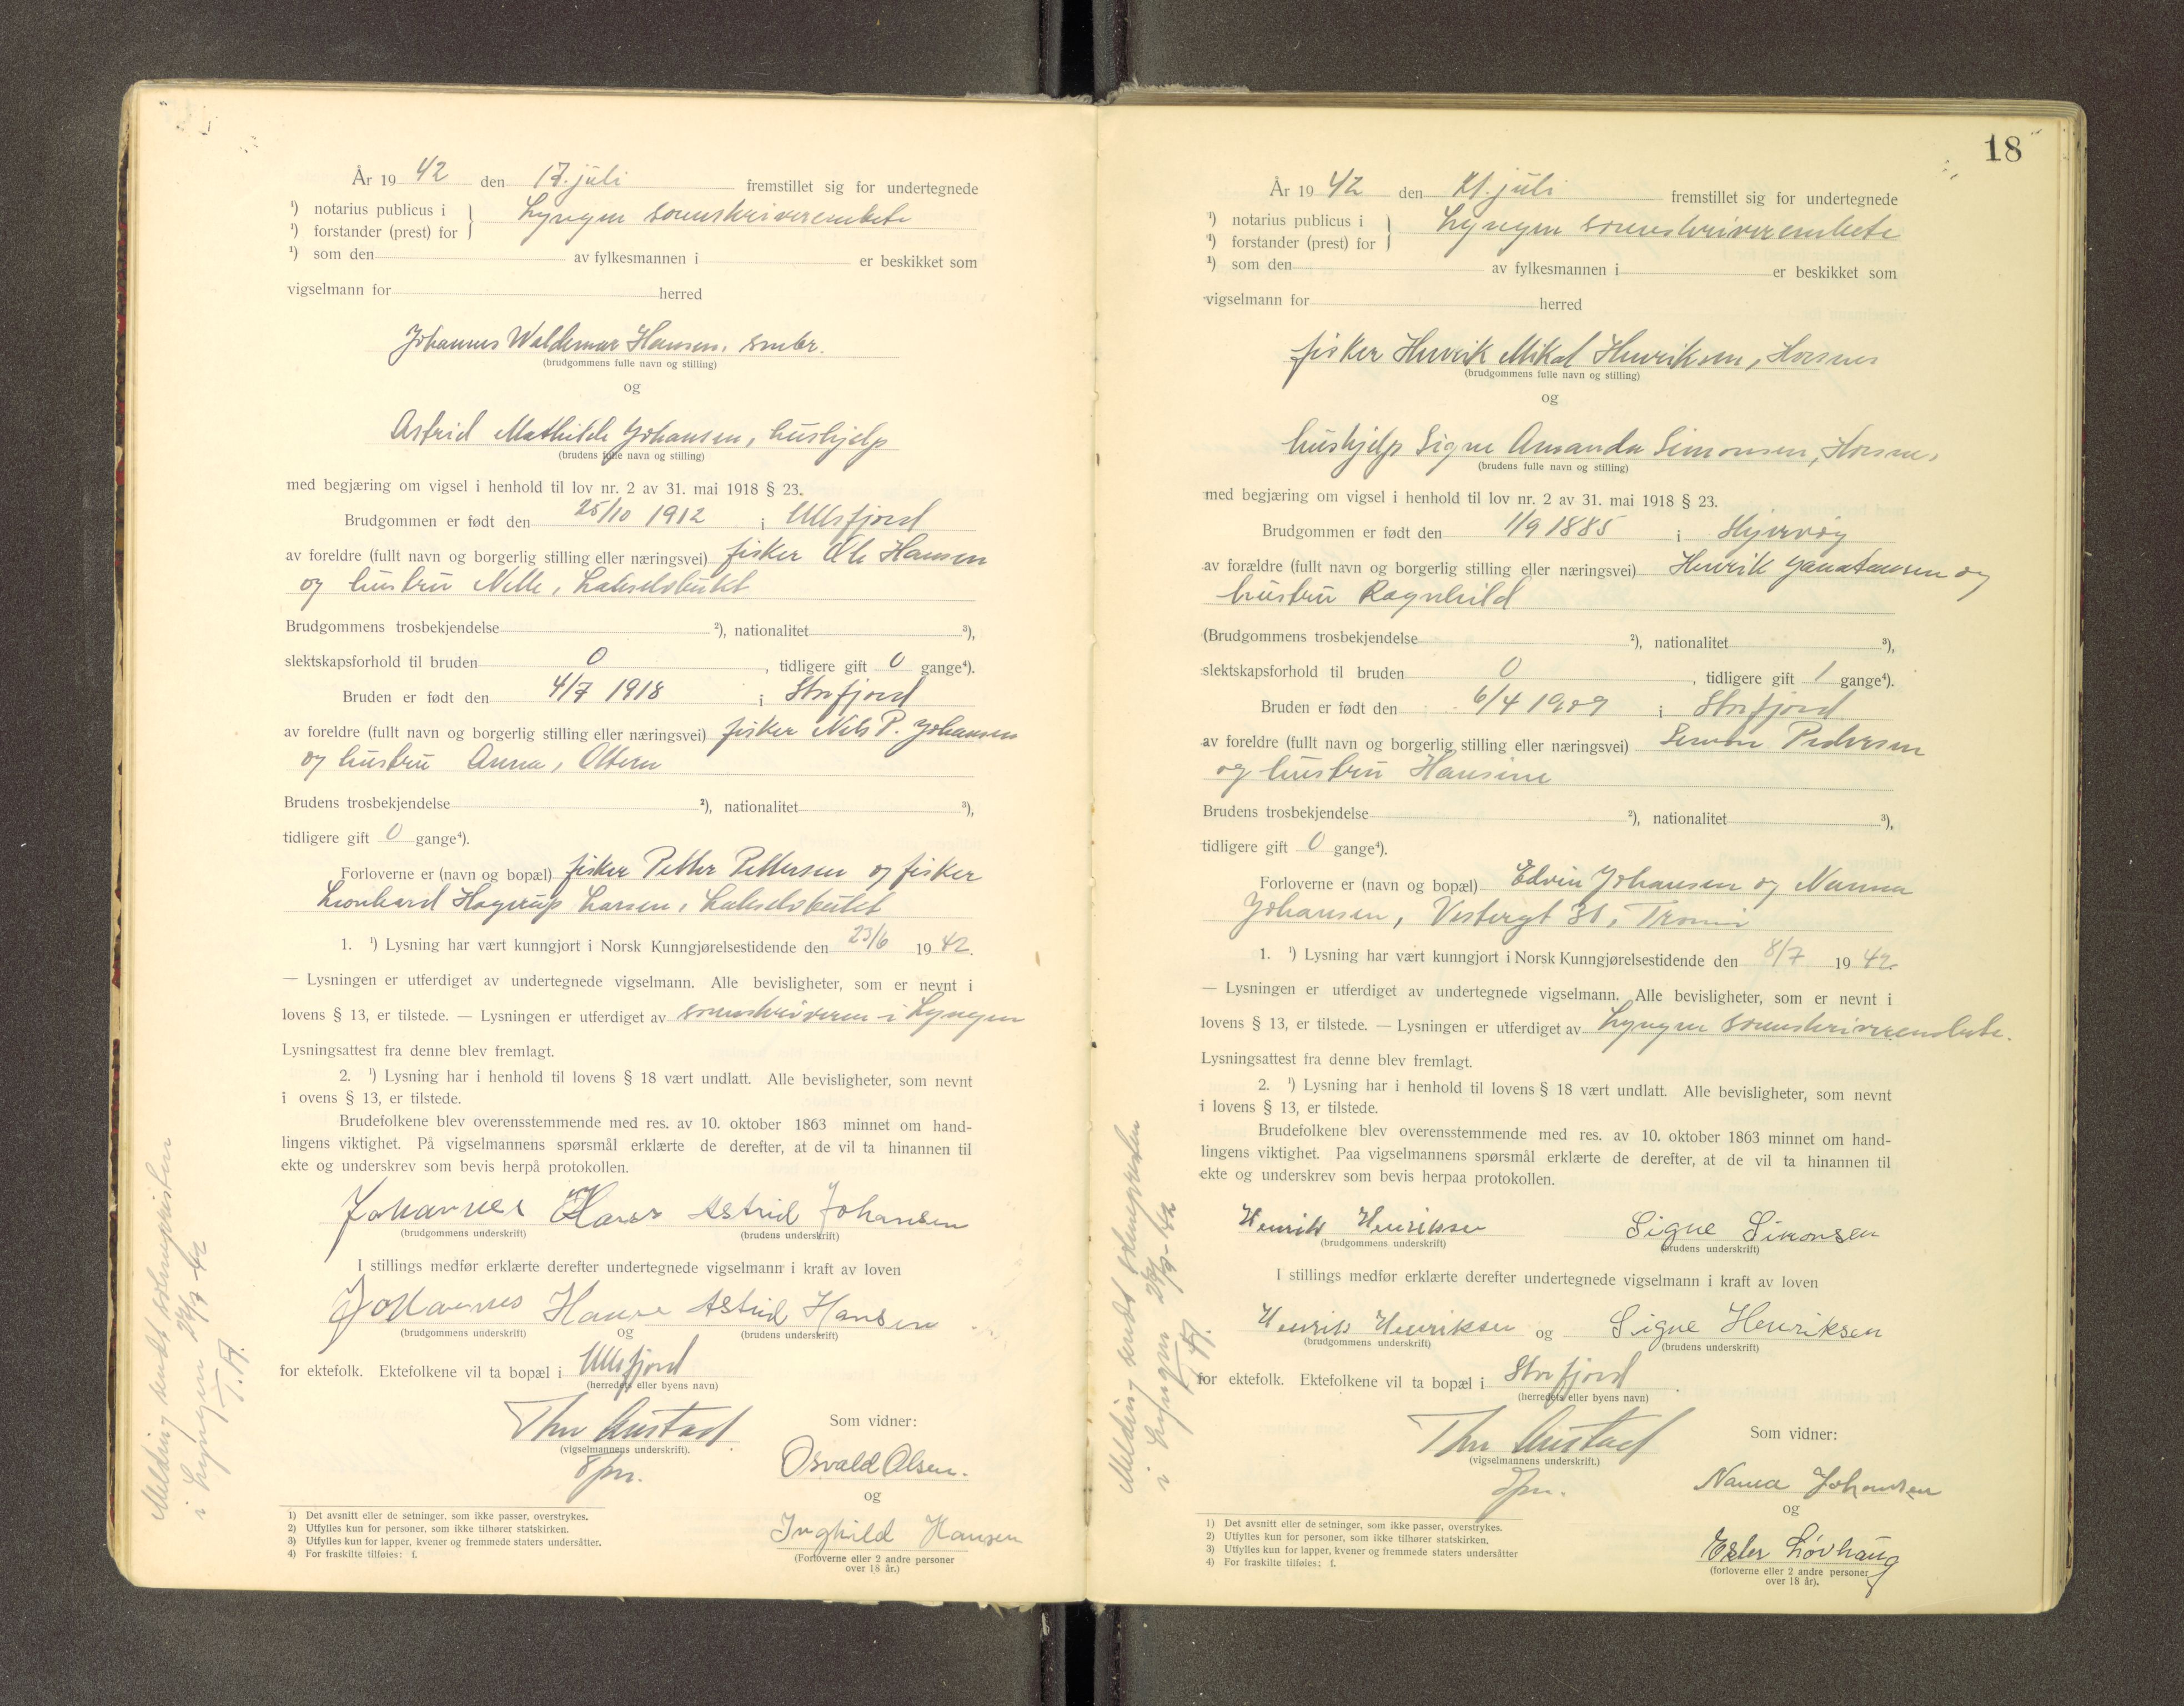 År 19 42 den 17. juli fremstillet sig for undertegnede
¹) notarius publicus i
Lyngen sorenskriverembete
¹) forstander (prest) for
¹) som den av fylkesmannen i er beskikket som
vigselmann for herred
Johannes Waldemar Hansen, smbr.
(brudgommens fulle navn og stilling)
og
Astrid Mathilde Johansen, hushjelp
(brudens fulle navn og stilling)
med begjæring om vigsel i henhold til lov nr. 2 av 31. mai 1918 § 23.
Brudgommen er født den 25/10 1912 i Ullsfjord
av foreldre (fullt navn og borgerlig stilling eller næringsvei) fisker Ole Hansen
og hustru Nelle, Lakselvbukt
Brudgommens trosbekjendelse ²), nationalitet ³),
slektskapsforhold til bruden 0, tidligere gift 0 gange⁴).
Bruden er født den 4/7 1918 i Storfjord
av foreldre (fullt navn og borgerlig stilling eller næringsvei) fisker Nils P. Johansen
og hustru Anna, Oteren
Brudens trosbekjendelse ²), nationalitet ³),
tidligere gift 0 gange⁴).
Forloverne er (navn og bopæl) fisker Petter Pettersen og fisker
Leonhard Hagerup Larsen, Lakselvbukt
1. ¹) Lysning har vært kunngjort i Norsk Kunngjørelsestidende den 23/6 1942.
— Lysningen er utferdiget av undertegnede vigselmann. Alle bevisligheter, som er nevnt i
lovens § 13, er tilstede. — Lysningen er utferdiget av sorenskriveren i Lyngen
Lysningsattest fra denne blev fremlagt.
2. ¹) Lysning har i henhold til lovens § 18 vært undlatt. Alle bevisligheter, som nevnt
i ovens § 13, er tilstede.
Brudefolkene blev overensstemmende med res. av 10. oktober 1863 minnet om hand-
lingens viktighet. På vigselmannens spørsmål erklærte de derefter, at de vil ta hinannen til
ekte og underskrev som bevis herpå protokollen.
Johannes Hansen Astrid Johansen
(brudgommens underskrift) (brudens underskrift)
I stillings medfør erklærte derefter undertegnede vigselmann i kraft av loven
Johannes Hansen Astrid Hansen
(brudgommens underskrift) og (brudens underskrift)
for ektefolk. Ektefolkene vil ta bopæl i Ullsfjord
(herredets eller byens navn)
Thv Austad
(vigselmannens underskrift).
Som vidner:
Osvald Olsen.
og
Inghild Hansen
(Forloverne eller 2 andre personer
over 18 år.)
1) Det avsnitt eller de setninger, som ikke passer, overstrykes.
2) Utfylles kun for personer, som ikke tilhører statskirken.
3) Utfylles kun for lapper, kvener og fremmede staters undersåtter.
4) For fraskilte tilføies: f.
Melding sendt sokneprestem
i Lyngen 24/7-42
T.A.
18
År 19 42 den 21. juli fremstillet sig for undertegnede
¹) notarius publicus i
Lyngen sorenskriverembete
¹) forstander (prest) for
¹) som den av fylkesmannen i er beskikket som
vigselmann for herred
fisker Henrik Mikal Henriksen, Horsnes
(brudgommens fulle navn og stilling)
og
hushjelp Signe Amanda Simonsen, Horsnes
(brudens fulle navn og stilling)
med begjæring om vigsel i henhold til lov nr. 2 av 31. mai 1918 § 23.
Brudgommen er født den 1/9 1885 i Skjervøy
av forældre (fullt navn og borgerlig stilling eller næringsvei) Henrik Janatansen og
hustru Ragnhild
(Brudgommens trosbekjendelse ²), nationalitet ³),
slektskapsforhold til bruden 0, tidligere gift 1 gange⁴).
Bruden er født den 6/4 1909 i Storfjord
av foreldre (fullt navn og borgerlig stilling eller næringsvei) Simon Pedersen
og hustru Hansine
Brudens trosbekjendelse ²), nationalitet ³),
tidligere gift 0 gange⁴).
Forloverne er (navn og bopæl) Edvin Johansen og Nanna
Johansen, Vestergt 31, Tromsø
1. ¹) Lysning har vært kunngjort i Norsk Kunngjørelsestidende den 8/7 1942.
— Lysningen er utferdiget av undertegnede vigselmann. Alle bevisligheter, som er nevnt i
lovens § 13, er tilstede. — Lysningen er utferdiget av Lyngen sorenskriverembete.
Lysningsattest fra denne blev fremlagt.
2. ¹) Lysning har i henhold til lovens § 18 vært undlatt. Alle bevisligheter, som nevnt
i lovens § 13, er tilstede.
Brudefolkene blev overensstemmende med res. av 10. oktober 1863 minnet om hand-
lingens viktighet. Paa vigselmannens spørsmål erklærte de derefter, at de vil ta hinannen til
ekte og underskrev som bevis herpaa protokollen.
Henrik Henriksen Signe Simonsen
(brudgommens underskrift) (brudens underskrift)
I stillings medfør erklærte derefter undertegnede vigselmann i kraft av loven
Henrik Henriksen og Signe Henriksen
(brudgommens underskrift) (brudens underskrift)
for ektefolk. Ektefolkene vil ta bopæl i Storfjord
(herredets eller byens navn)
Thv Austad
(vigselmannens underskrift.)
Som vidner:
Nanna Johansen
og
Ester Løvhaug
(forloverne eller 2 andre personer
over 18 år).
1) Det avsnitt eller de setninger, som ikke passer, overstrykes.
2) Utfylles kun for personer, som ikke tilhører statskirken.
3) Utfylles kun for lapper, kvener og fremmede staters undersåtter
4) For fraskilte tilføies: f.
Melding sendt sokneprestem
i Lyngen
T.A.